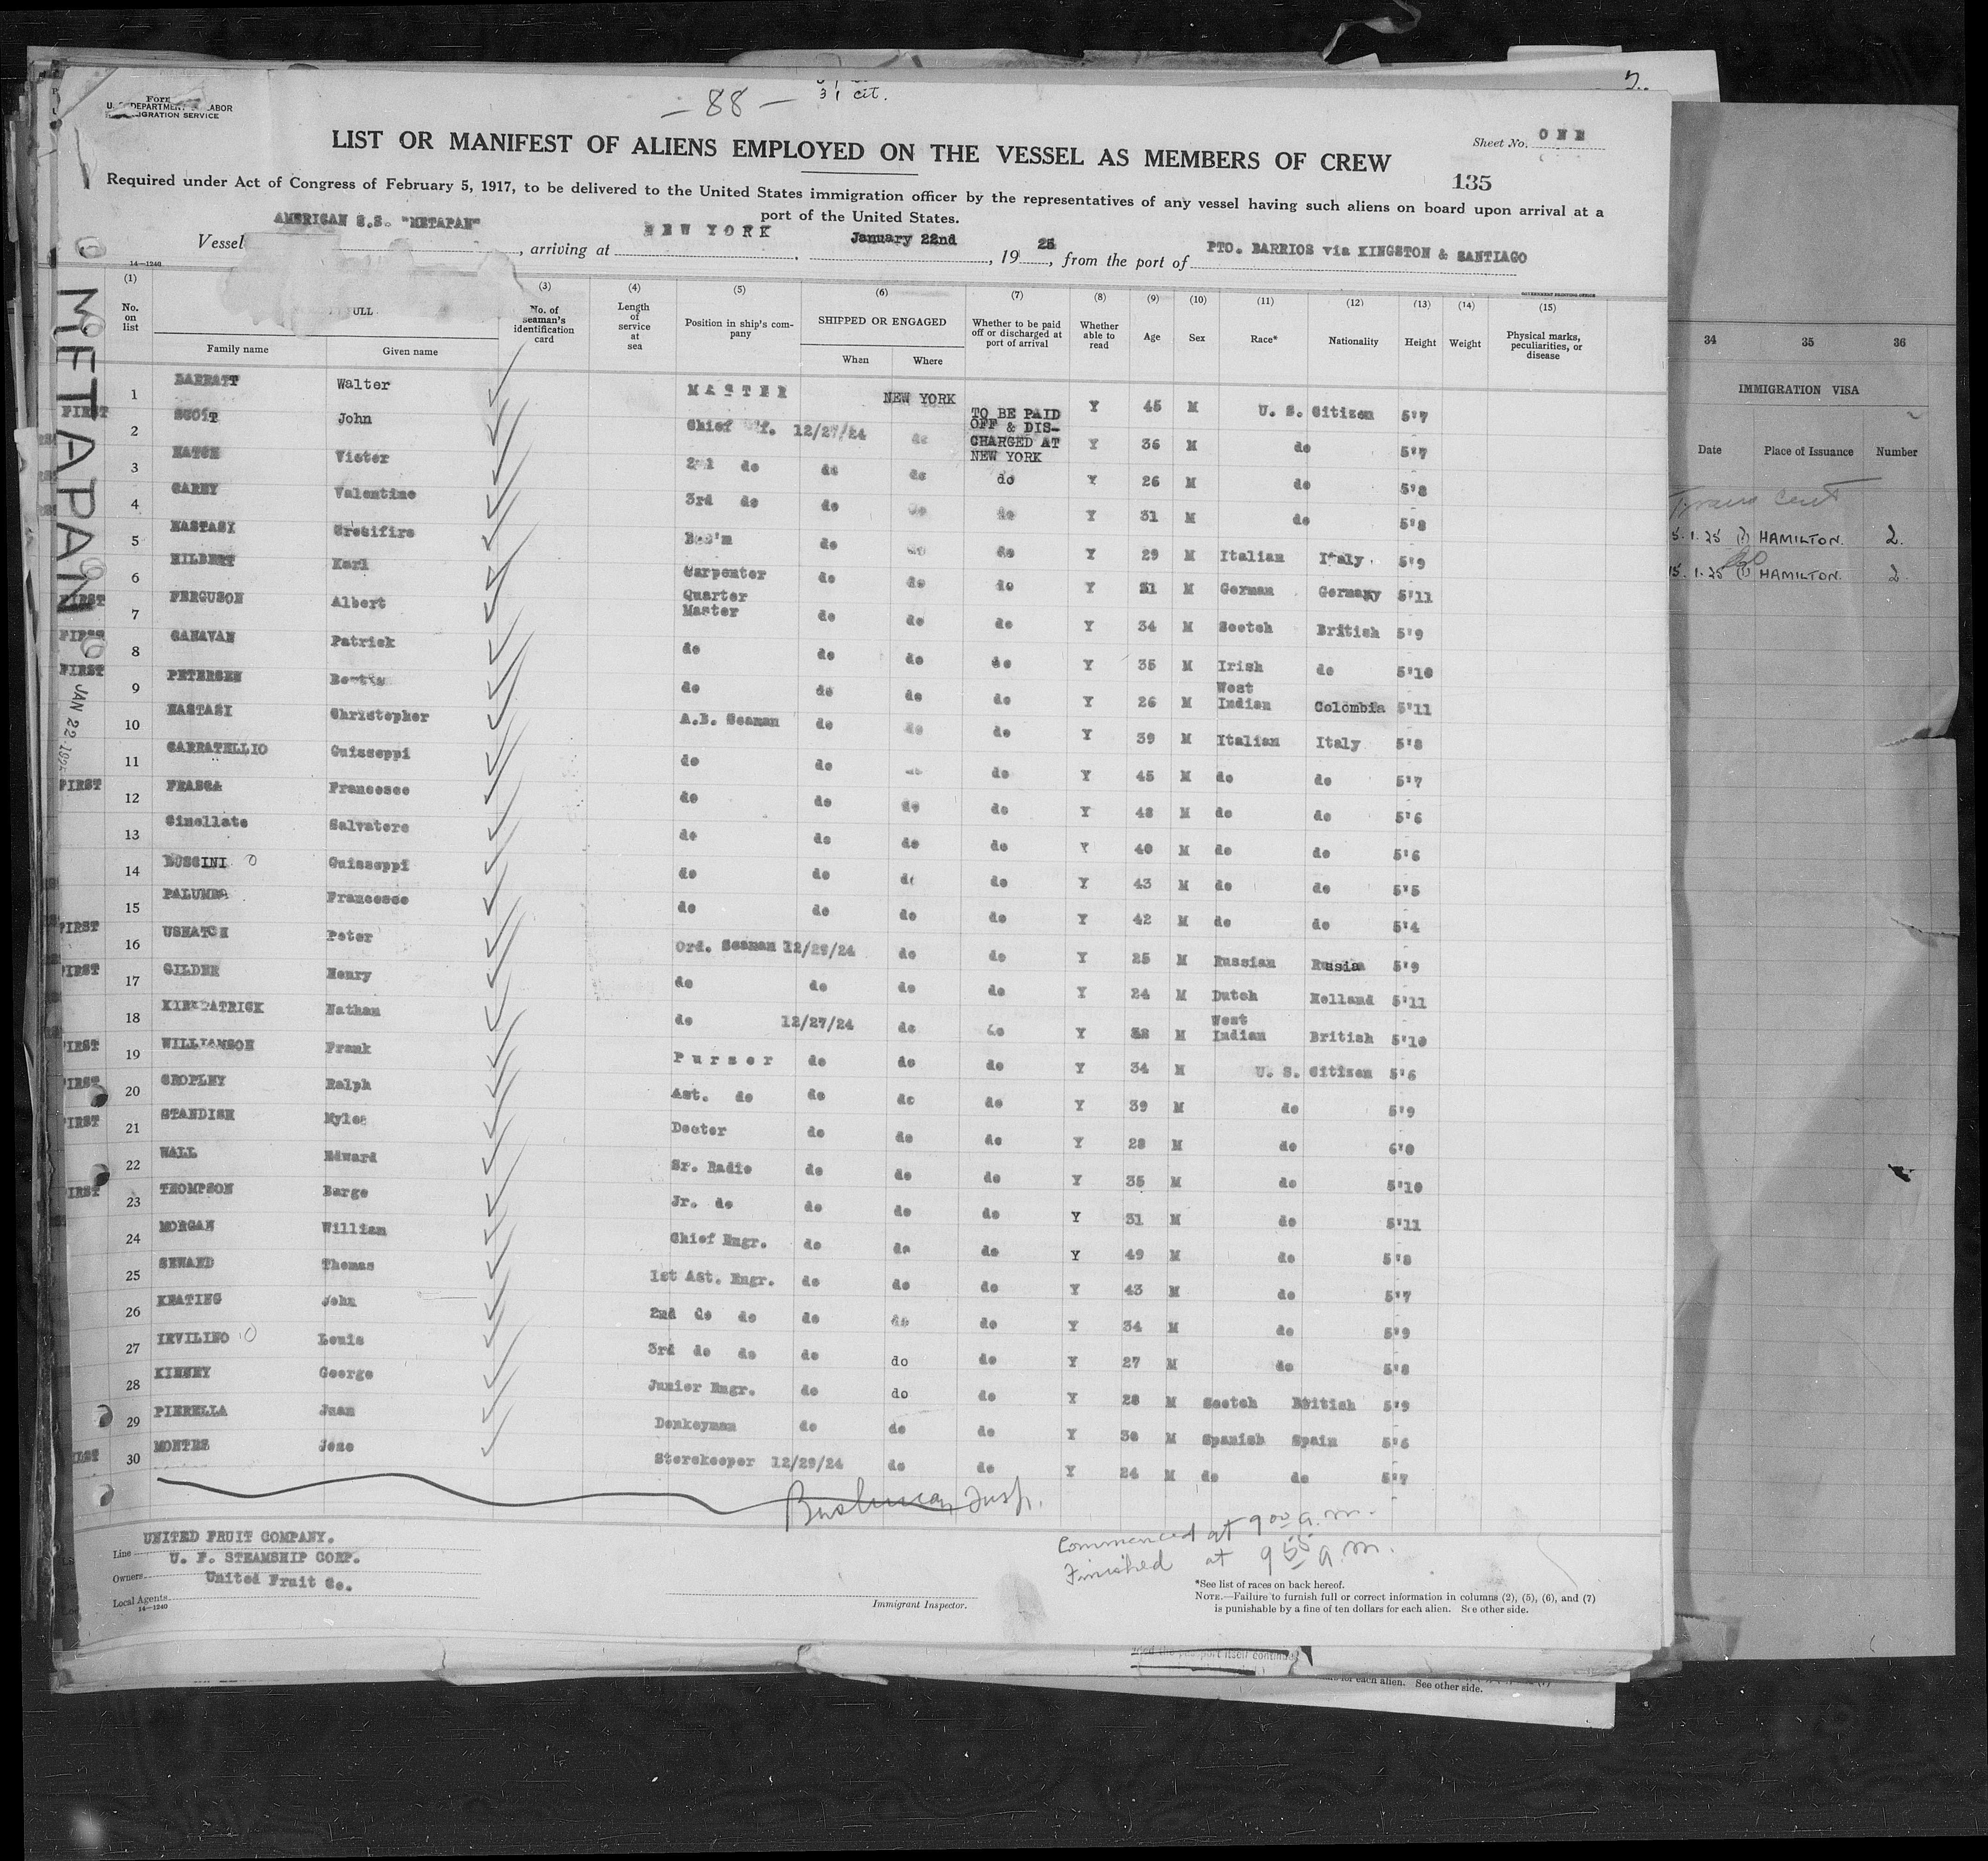 - 88 -
31 cit.
U. S. DEPARTMENT OF LABOR
IMMIGRATION SERVICE
Sheet No. ONE
LIST OR MANIFEST OF ALIENS EMPLOYED ON THE VESSEL AS MEMBERS OF CREW
135
Required under Act of Congress of February 5, 1917, to be delivered to the United States immigration officer by the representatives of any vessel having such aliens on board upon arrival at a
port of the United States.
Vessel AMERICAN S.S. "METAPAN", arriving at NEW YORK, January 22nd, 1925, from the port of PTO. BARRIOS via KINGSTON & SANTIAGO
14—1240
GOVERNMENT PRINTING OFFICE
(1) (3) (4) (5) (6) (7) (8) (9) (10) (11) (12) (13) (14) (15)
No. on list FULL Family name Given name No. of seaman's identification card Length of service at sea Position in ship's company SHIPPED OR ENGAGED When Where Whether to be paid off or discharged at port of arrival Whether able to read Age Sex Race* Nationality Height Weight Physical marks, peculiarities, or disease
1 BARRATT Walter MASTER NEW YORK TO BE PAID OFF & DISCHARGED AT NEW YORK Y 45 M U. S. Citizen 5'7
FIRST 2 SCOTT John Chief Off. 12/27/24 do Y 36 M do 5'7
3 HATCH Victor 2nd do do do do Y 26 M do 5'8
4 CARNY Valentine 3rd do do do do Y 31 M do 5'8
5 NASTASI Bos'n do do do Y 29 M Italian Italy 5'9
6 HILBERT Karl Carpenter do do do Y 31 M German Germany 5'11
FIRST 7 FERGUSON Albert Quarter Master do do do Y 34 M Scotch British 5'9
FIRST 8 CANAVAN Patrick do do do do Y 35 M Irish do 5'10
FIRST 9 PETERSEN do do do do Y 26 M West Indian Colombia 5'11
10 NASTASI Christopher A.B. Seaman do do do Y 39 M Italian Italy 5'8
11 CARRATELLIO Guisseppi do do do do Y 45 M do do 5'7
FIRST 12 FRASCA Francesco do do do do Y 48 M do do 5'6
13 Cinellato Salvatore do do do do Y 40 M do do 5'6
14 BUSCINI Guisseppi do do do do Y 43 M do do 5'5
15 PALUMBO Francesco do do do do Y 42 M do do 5'4
FIRST 16 USHATCH Peter Ord. Seaman 12/29/24 do do Y 25 M Russian Russia 5'9
FIRST 17 GILDER Henry do do do do Y 24 M Dutch Holland 5'11
18 KIRKPATRICK Nathan do 12/27/24 do do Y 38 M West Indian British 5'10
FIRST 19 WILLIAMSON Frank Purser do do do Y 34 M U. S. Citizen 5'6
FIRST 20 CROPLEY Ralph Ast. do do do do Y 39 M do 5'9
FIRST 21 STANDISH Myles Doctor do do do Y 28 M do 6'0
22 WALL Edward Sr. Radio do do do Y 35 M do 5'10
FIRST 23 THOMPSON Barge Jr. do do do do Y 31 M do 5'11
24 MORGAN William Chief Engr. do do do Y 49 M do 5'8
25 SEWARD Thomas 1st Ast. Engr. do do do Y 43 M do 5'7
26 KEATING John 2nd do do do do do Y 34 M do 5'9
27 IRVILINO Louis 3rd do do do do do Y 27 M do 5'8
28 KINNEY George Junior Engr. do do do Y 28 M Scotch British 5'9
29 PIERELLA Juan Donkeyman do do do Y 30 M Spanish Spain 5'6
FIRST 30 MONTES Jose Storekeeper 12/29/24 do do Y 24 M do do 5'7
METAPAN
JAN 22 1925
Insp.
Commenced at 9 00 a.m.
Finished at 9 55 a.m.
Line UNITED FRUIT COMPANY.
Owners U. F. STEAMSHIP CORP.
Local Agents United Fruit Co.
14—1240
Immigrant Inspector.
*See list of races on back hereof.
NOTE.—Failure to furnish full or correct information in columns (2), (5), (6), and (7)
is punishable by a fine of ten dollars for each alien. See other side.
34 35 36
IMMIGRATION VISA
Date Place of Issuance Number
Trans Cert
5.1.25 HAMILTON. 2.
15.1.25 HAMILTON. 2
for each alien. See other side.